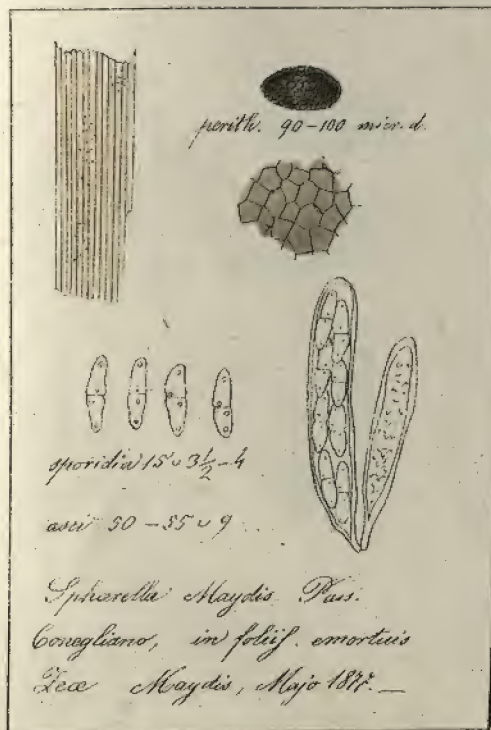 perith. 90-100 micr. d.
sporidia 15 ᴗ 3 1/2 - 4
asci 50 - 55 ᴗ 9
Sphærella Maydis Pass.
Conegliano, in foliis emortuis
Zeæ Maydis, Majo 1877. —